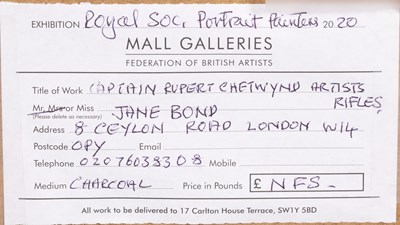 EXHIBITION Royal Soc. Portrait Painters 2020
MALL GALLERIES
FEDERATION OF BRITISH ARTISTS
Title of Work CAPTAIN RUPERT CHETWYND ARTISTS
RIFLES
Mr, Mrs or Miss JANE BOND
(Please delete as necessary)
Address 8 CEYLON ROAD LONDON W14
Postcode OPY Email
Telephone 02076038308 Mobile
Medium CHARCOAL Price in Pounds £ NFS.
All work to be delivered to 17 Carlton House Terrace, SW1Y 5BD